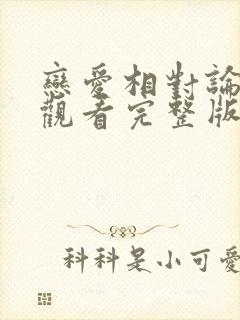 戀愛相對論
觀看完整版
科科是小可愛